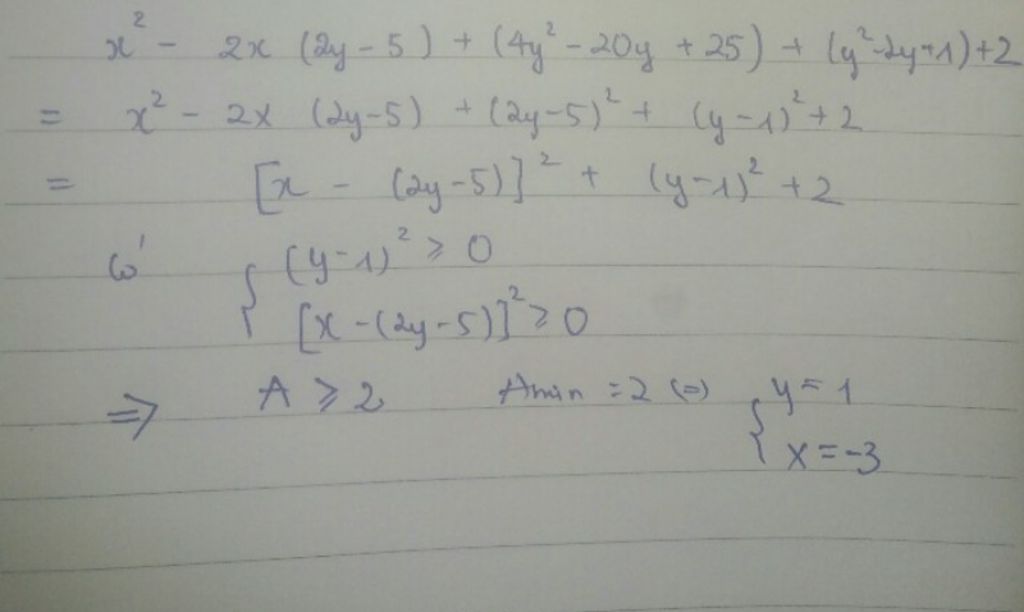 x² - 2x (2y - 5) + (4y² - 20y + 25) + (y² - 2y + 1) + 2
= x² - 2x (2y-5) + (2y-5)² + (y-1)² + 2
= [x - (2y-5)]² + (y-1)² + 2
có { (y-1)² ≥ 0
[x - (2y-5)]² ≥ 0
=> A ≥ 2 Amin = 2 (=) { y = 1
x = -3